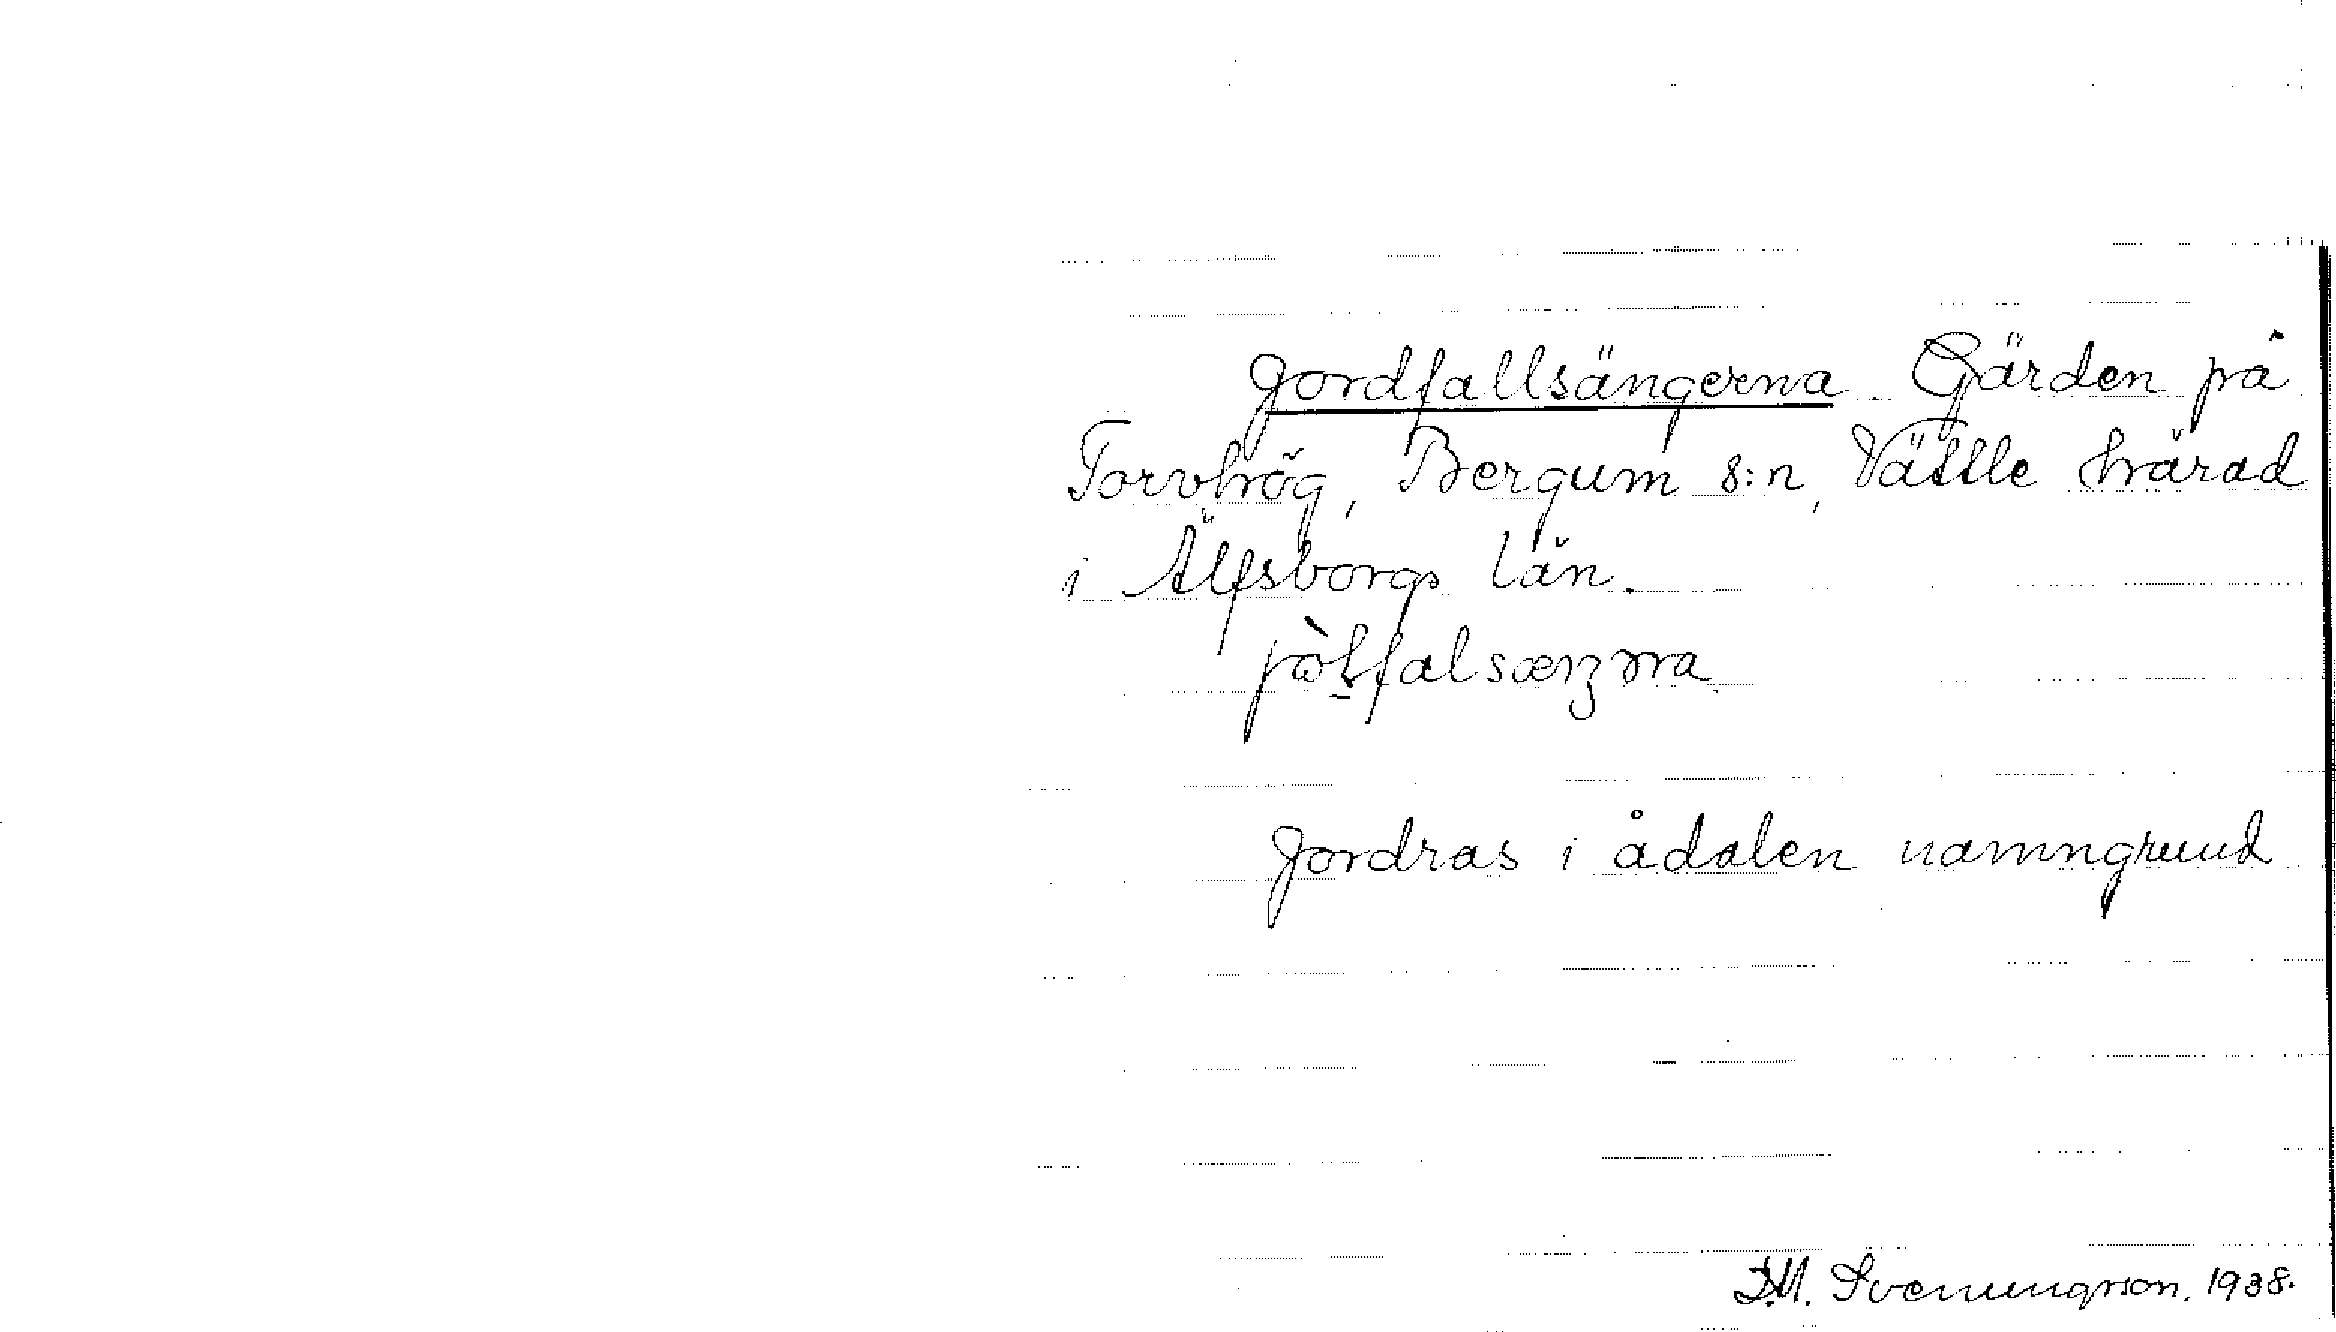 Jordfallsängerna Gärden på
Torvhög, Bergum s:n, Vättle härad
i Älfsborgs län.
Jordras i ådalen namngrund
D.M. Svenungsson. 1938.